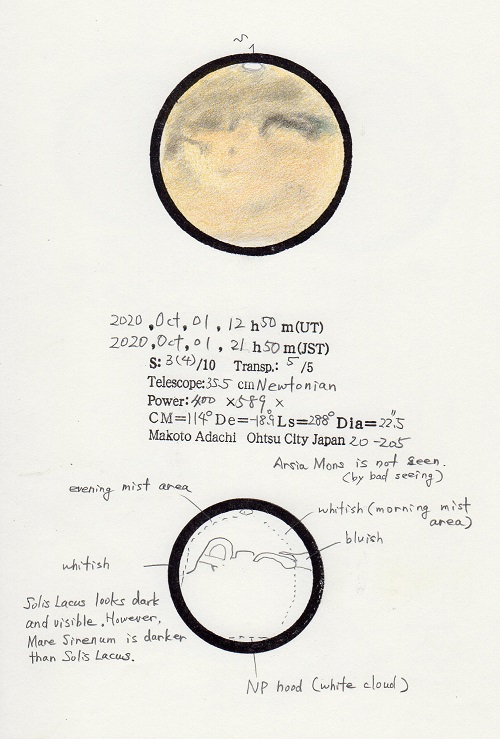 2020, Oct, 01, 12 h 50 m (UT)
2020, Oct, 01, 21 h 50 m (JST)
S: 3(4)/10 Transp.: 5 /5
Telescope: 35.5 cm Newtonian
Power: 400 ×589 ×
CM=114° De=-18.9 Ls=288° Dia=22".5
Makoto Adachi Ohtsu City Japan 20-205
Arsia Mons is not seen.
(by bad seeing)
evening mist area
whitish (morning mist
area)
bluish
whitish
Solis Lacus looks dark
and visible. However,
Mare Sirenum is darker
than Solis Lacus.
NP hood (white cloud)